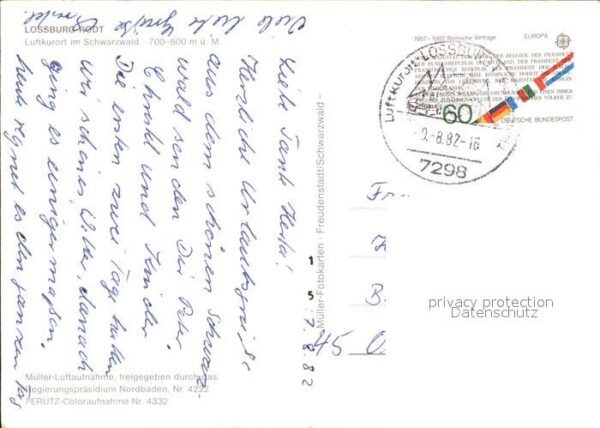 LOSSBURG-RODT
Luftkurort im Schwarzwald · 700–800 m ü. M
Liebe Tante Herta!
Herzliche Urlaubsgrüße
aus dem schönen Schwarz-
wald senden Dir Peter
Christel und Kinder
Die ersten zwei Tage hatten
wir schönes Wetter, danach
ging es einigermaßen.
heute regnet es den ganzen Tag
Viele liebe Grüße
Müller-Luftaufnahme, freigegeben durch das
Regierungspräsidium Nordbaden, Nr. 4222
PERUTZ-Coloraufnahme Nr. 4332
Müller-Fotokarten · Freudenstadt/Schwarzwald –
1
5
7.8.82
1957-1982 Römische Verträge
EUROPA
60
DEUTSCHE BUNDESPOST
Luftkurort LOSSBURG
-8.82-16
7298
Fr
B
45 O
privacy protection
Datenschutz